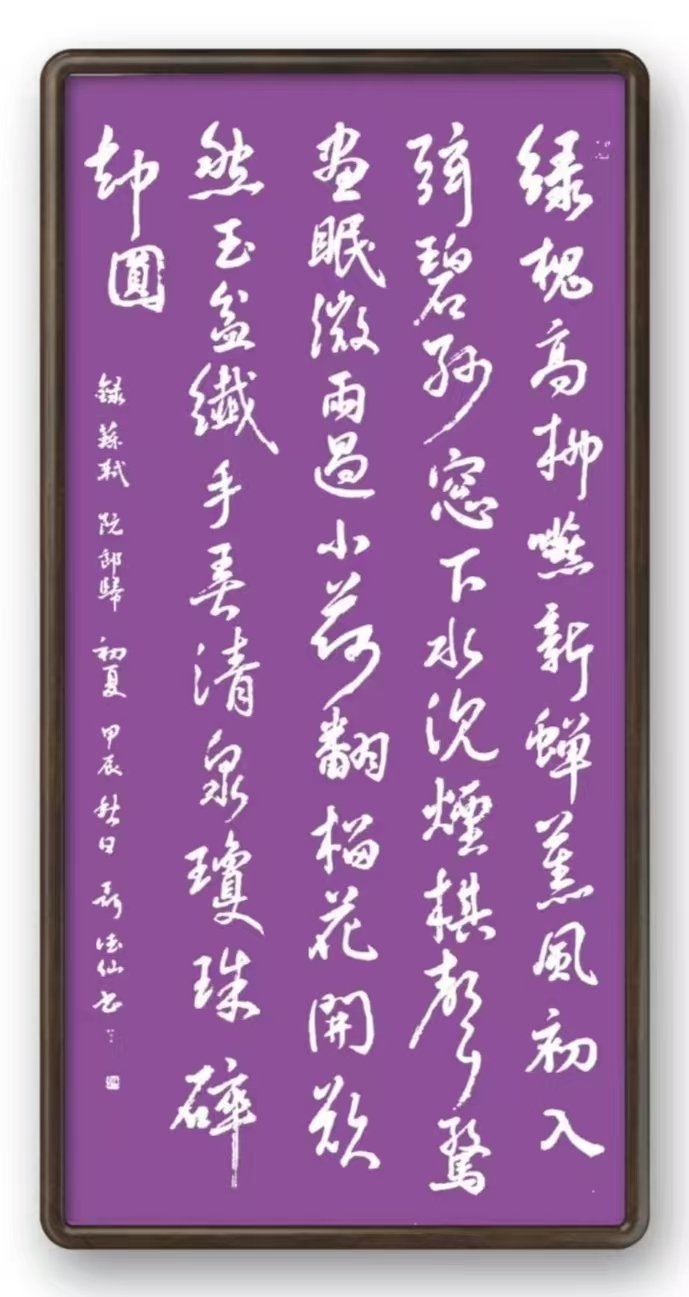 绿槐高柳噦新蝉薰风初入
弦碧纱窓下水沉煙棋声驚
昼眠微雨過小荷翻榴花開欲
然玉盆纖手弄清泉瓊珠碎
却圓
録蘇軾阮郎歸初夏甲辰秋日聂法仙書